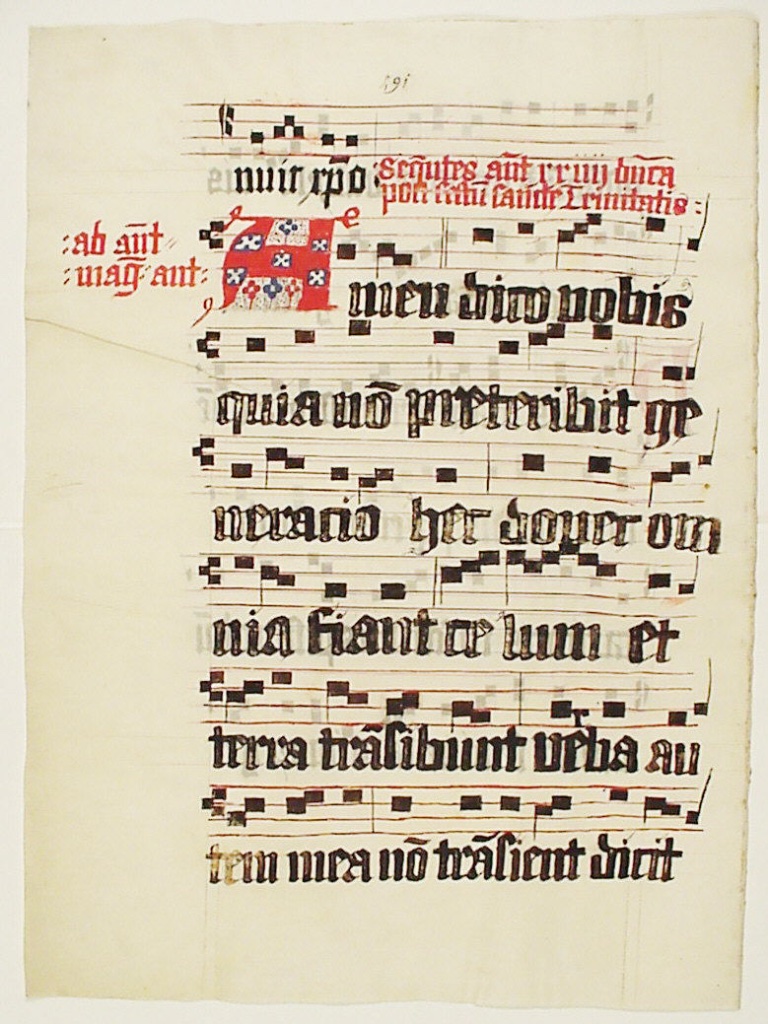 191
nuit xp̃o
Sequẽtes añt xxiiij dñica
post festũ sancte Trinitatis
:ab añt
:mag̃ ant:
Amen dico vobis
quia nõ preteribit ge
neracio hec donec om
nia fiant ce lum et
terra trãsibunt v̾ba au
tem mea nõ trãsient dicit